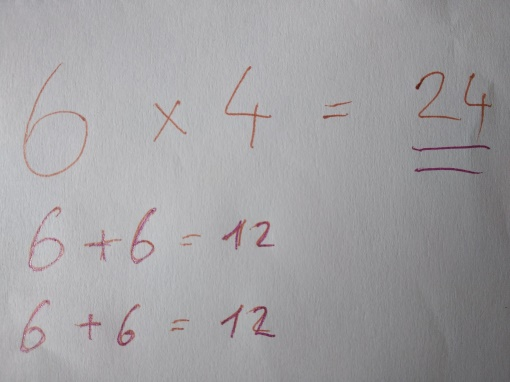 6 × 4 = 24
6 + 6 = 12
6 + 6 = 12